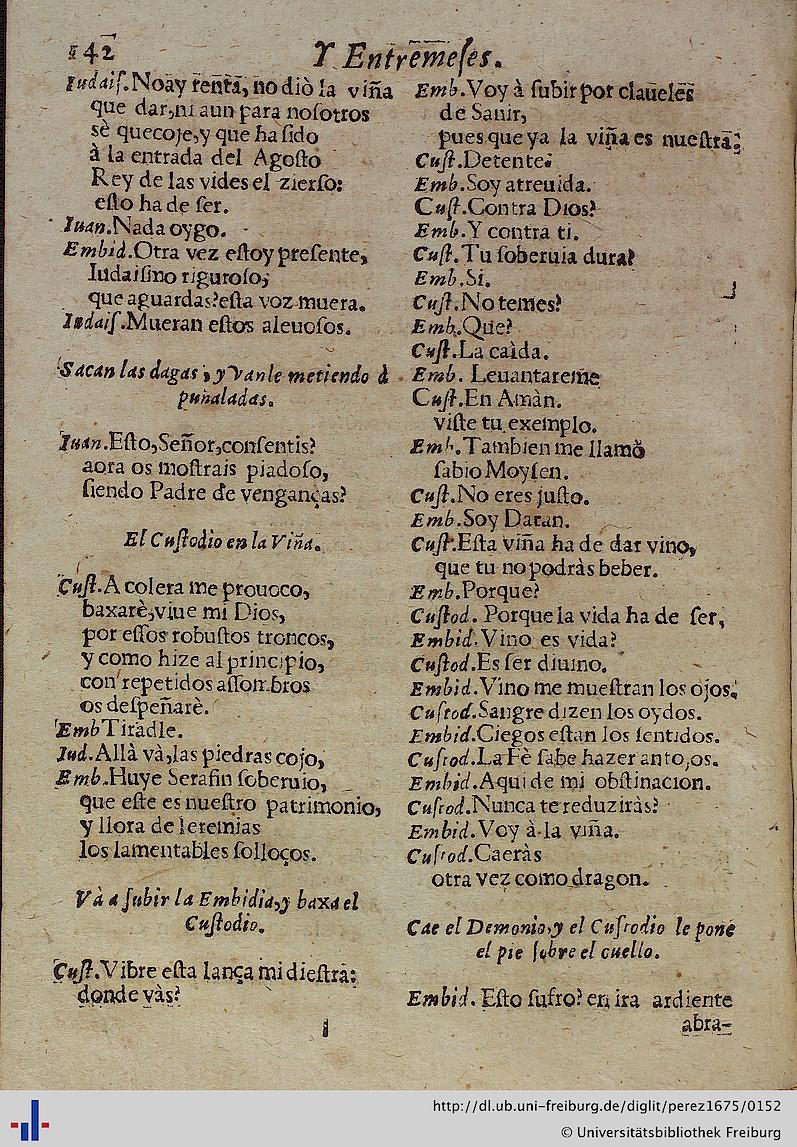 142
Y Entremeſes.
Iudaiſ. No ay renta, no diò la viña
que dar, ni aun para noſotros
sè que coje, y que ha ſido
à la entrada del Agoſto
Rey de las vides el zierſo:
eſto ha de ſer.
Iuan. Nada oygo.
Embid. Otra vez eſtoy preſente,
Iudaiſmo riguroſo;
que aguardas? eſta voz muera.
Iudaiſ. Mueran eſtos aleuoſos.
Sacan las dagas, y Vanle metiendo à
puñaladas.
Iuan. Eſto, Señor, conſentis?
aora os moſtrais piadoſo,
ſiendo Padre de venganças?
El Cuſtodio en la Viña.
Cuſt. A colera me prouoco,
baxarè, viue mi Dios,
por eſſos robuſtos troncos,
y como hize al principio,
con repetidos aſſombros
os deſpeñarè.
Emb Tiradle.
Iud. Allà và, las piedras cojo,
Emb. Huye Serafin ſoberuio,
que eſte es nueſtro patrimonio,
y llora de Ieremias
los lamentables ſolloços.
Và a ſubir la Embidia, y baxa el
Cuſtodio.
Cuſt. Vibre eſta lança mi dieſtra:
donde vàs?
Emb. Voy à ſubir por claueles
de Sanir,
pues que ya la viña es nueſtra:
Cuſt. Detente.
Emb. Soy atreuida.
Cuſt. Contra Dios?
Emb. Y contra ti.
Cuſt. Tu ſoberuia dura?
Emb. Si.
Cuſt. No temes?
Emb. Que?
Cuſt. La caìda.
Emb. Leuantareme
Cuſt. En Amàn.
viſte tu exemplo.
Emb. Tambien me llamò
ſabio Moyſen.
Cuſt. No eres juſto.
Emb. Soy Datan.
Cuſt. Eſta viña ha de dar vino,
que tu no podràs beber.
Emb. Porque?
Cuſtod. Porque la vida ha de ſer,
Embid. Vino es vida?
Cuſtod. Es ſer diuino.
Embid. Vino me mueſtran los ojos.
Cuſtod. Sangre dizen los oydos.
Embid. Ciegos eſtan los ſentidos.
Cuſtod. La Fè ſabe hazer antojos.
Embid. Aqui de mi obſtinacion.
Cuſtod. Nunca te reduziràs?
Embid. Voy à la viña.
Cuſtod. Caeràs
otra vez como dragon.
Cae el Demonio, y el Cuſtodio le pone
el pie ſobre el cuello.
Embid. Eſto ſufro? en ira ardiente
abra-
http://dl.ub.uni-freiburg.de/diglit/perez1675/0152
© Universitätsbibliothek Freiburg